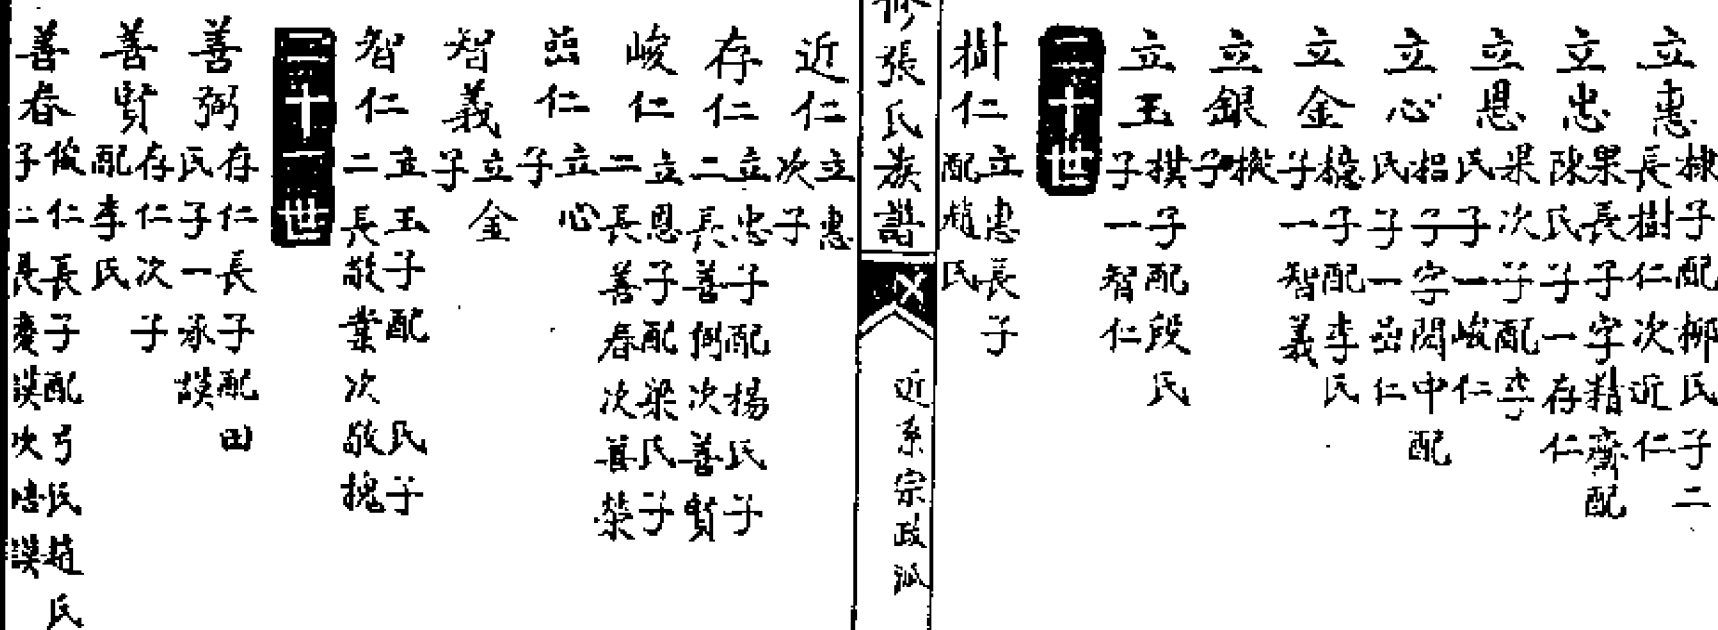 立惠 棣子配柳氏子二
長樹仁次近仁
立忠 果長子字精齋配
陳氏子一存仁
立恩 果次子配李
氏子一峻仁
立心 招子字閎中配
氏子一茁仁
立金 檍子配李氏
子一智義
立銀 樅
子
立玉 棋子配段氏
子一智仁
二十世
樹仁 立惠長子
配趙氏
修張氏族譜
近系宗政派
近仁 立惠
次子
存仁 立忠子配楊氏子
二長善弼次善賢
峻仁 立恩子配梁氏子
二長善春次善榮
茁仁 立心
子
智義 立金
子
智仁 立玉子配 氏子
二長敬業次敬槐
二十一世
善弼 存仁長子配田
氏子一承謨
善賢 存仁次子
配李氏
善春 峻仁長子配弓氏趙氏
子二長慶謨次 謨